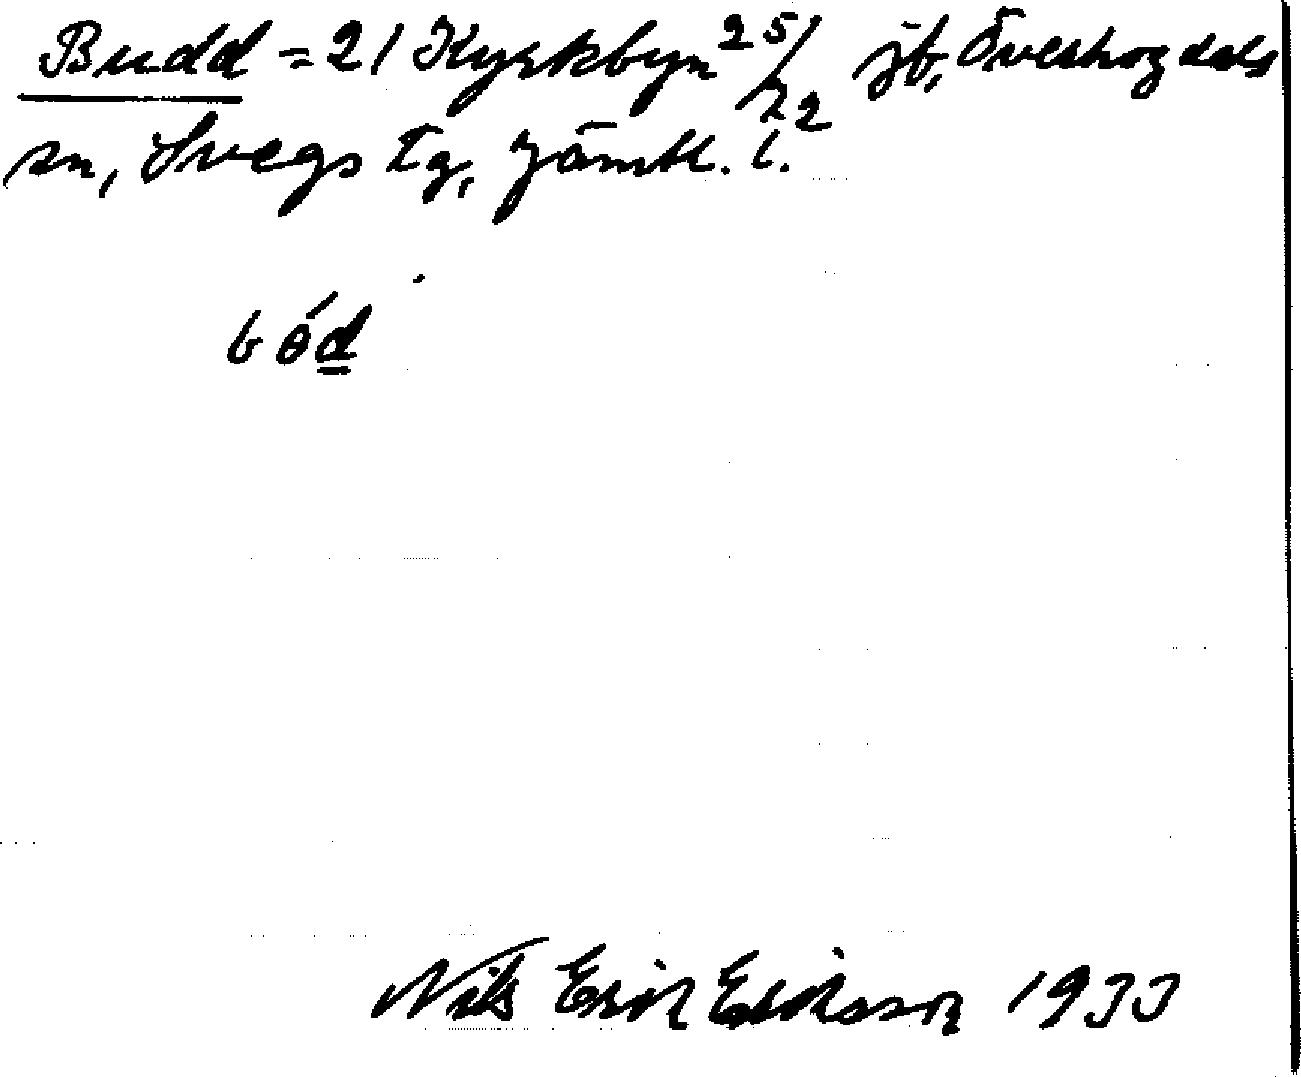 Budd = 21 Kyrkbyn 25/72 jb, Överhogdals
sn, Svegs tg, Jämtl. l.
bɵ́d
Nils Erik Eriksson 1933